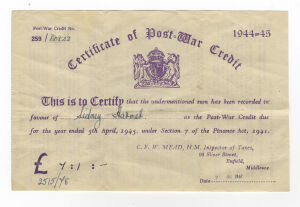 Post-War Credit No.
1944-45
Certificate of Post-War Credit
This is to Certify that the undermentioned sum has been recorded in
favour of Sidney as the Post-War Credit due
for the year ended 5th April, 1945, under Section 7 of the Finance Act, 1941.
C. F. W. MEAD, H.M. Inspector of Taxes,
Enfield,
Middlesex
£ 7 : 1 : -
Date